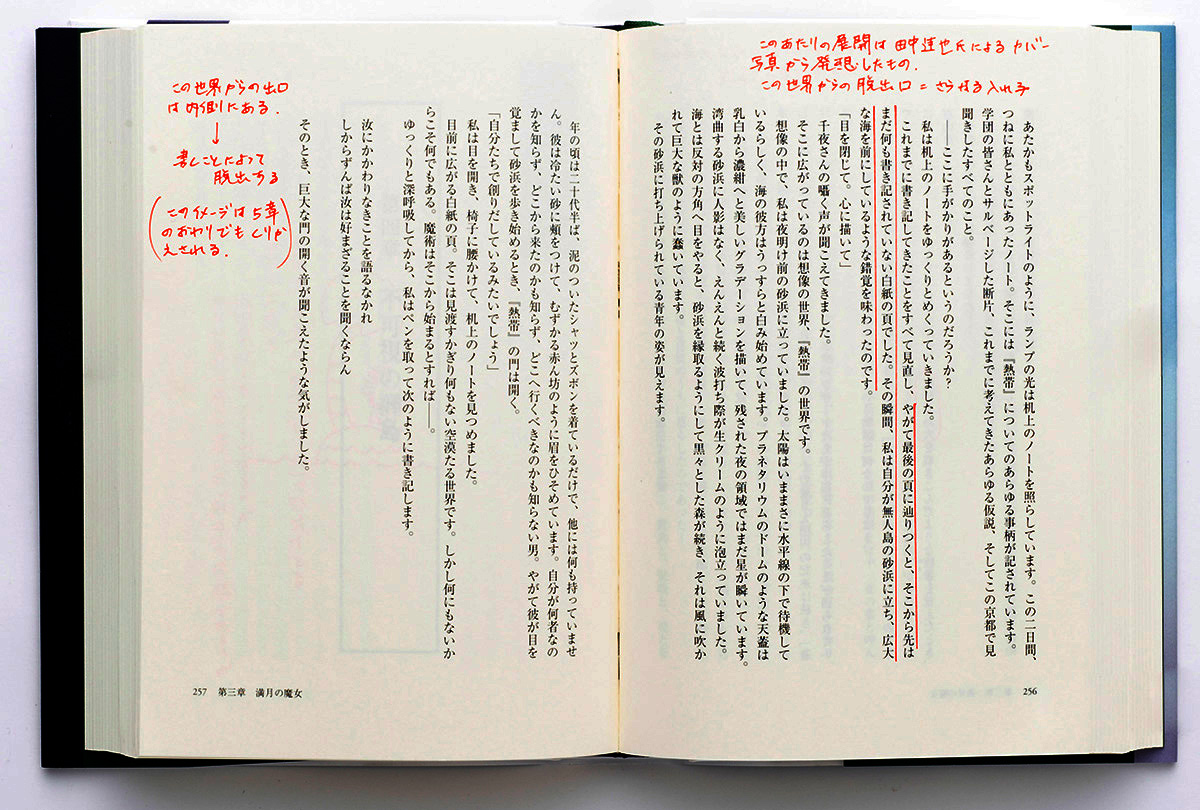 このあたりの展開は田中達也氏によるカバー
写真から発想したもの.
この世界からの脱出口=さらなる入れ子
あたかもスポットライトのように、ランプの光は机上のノートを照らしています。この二日間、
つねに私とともにあったノート。そこには『熱帯』についてのあらゆる事柄が記されています。
学団の皆さんとサルベージした断片、これまでに考えてきたあらゆる仮説、そしてこの京都で見
聞きしたすべてのこと。
――ここに手がかりがあるというのだろうか?
私は机上のノートをゆっくりとめくっていきました。
これまでに書き記してきたことをすべて見直し、やがて最後の頁に辿りつくと、そこから先は
まだ何も書き記されていない白紙の頁でした。その瞬間、私は自分が無人島の砂浜に立ち、広大
な海を前にしているような錯覚を味わったのです。
「目を閉じて。心に描いて」
千夜さんの囁く声が聞こえてきました。
そこに広がっているのは想像の世界、『熱帯』の世界です。
想像の中で、私は夜明け前の砂浜に立っていました。太陽はいままさに水平線の下で待機して
いるらしく、海の彼方はうっすらと白み始めています。プラネタリウムのドームのような天蓋は
乳白から濃紺へと美しいグラデーションを描いて、残された夜の領域ではまだ星が瞬いています。
湾曲する砂浜に人影はなく、えんえんと続く波打ち際が生クリームのように泡立っていました。
海とは反対の方角へ目をやると、砂浜を縁取るようにして黒々とした森が続き、それは風に吹か
れて巨大な獣のように蠢いています。
その砂浜に打ち上げられている青年の姿が見えます。
256
この世界からの出口
は内側にある.
↓
書くことによって
脱出する
(このイメージは5章
のおわりでもくりか
えされる.)
年の頃は二十代半ば、泥のついたシャツとズボンを着ているだけで、他には何も持っていませ
ん。彼は冷たい砂に頬をつけて、むずかる赤ん坊のように眉をひそめています。自分が何者なの
かを知らず、どこから来たのかも知らず、どこへ行くべきなのかも知らない男。やがて彼が目を
覚まして砂浜を歩き始めるとき、『熱帯』の門は開く。
「自分たちで創りだしているみたいでしょう」
私は目を開き、椅子に腰かけて、机上のノートを見つめました。
目前に広がる白紙の頁。そこは見渡すかぎり何もない空漠たる世界です。しかし何にもないか
らこそ何でもある。魔術はそこから始まるとすれば――。
ゆっくりと深呼吸してから、私はペンを取って次のように書き記します。
汝にかかわりなきことを語るなかれ
しからずんば汝は好まざることを聞くならん
そのとき、巨大な門の開く音が聞こえたような気がしました。
257 第三章 満月の魔女